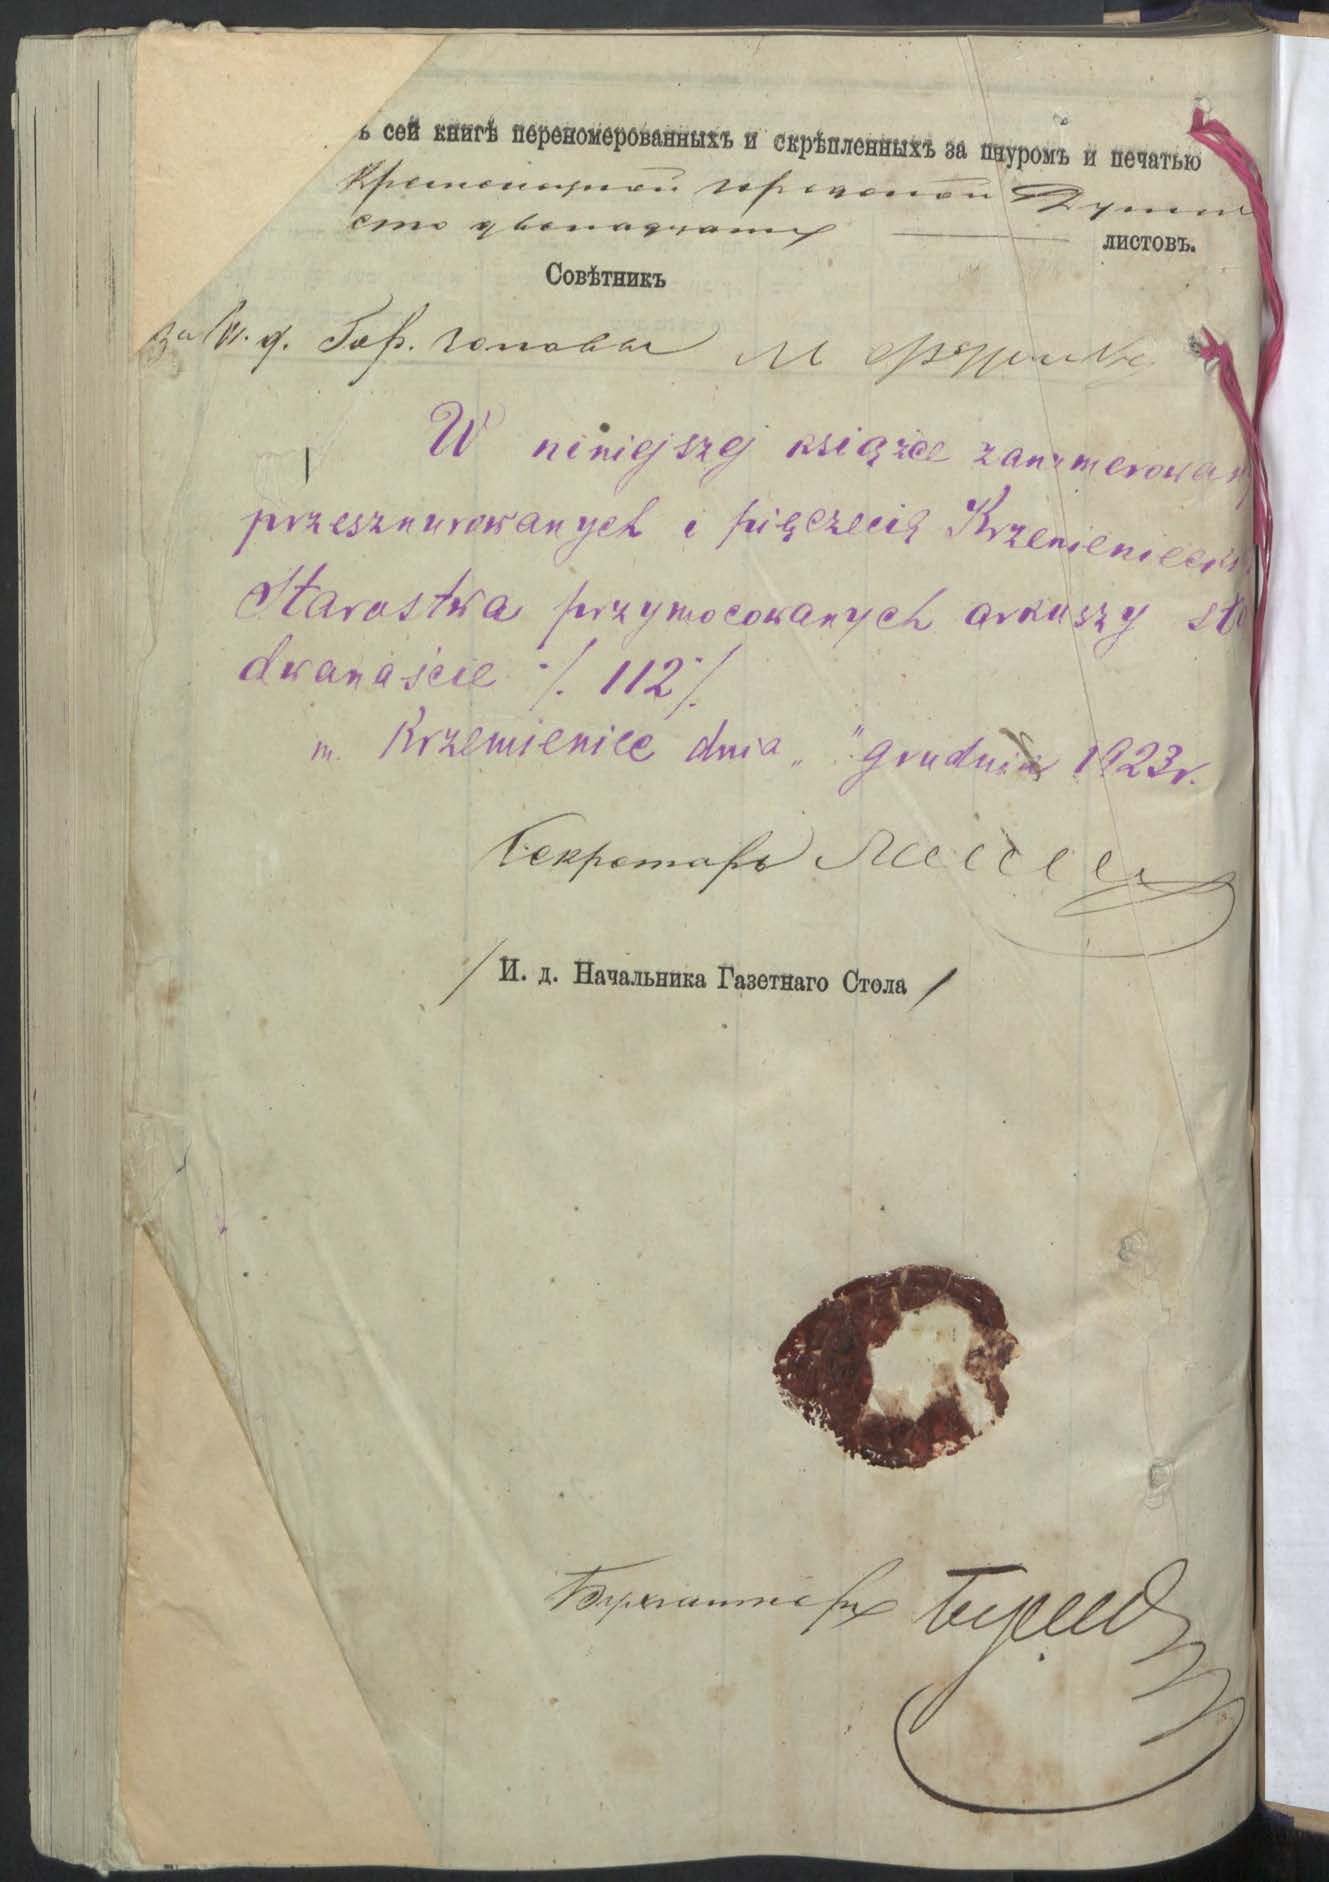 ъ сей книгѣ перенoмерованныхъ и скрѣпленныхъ за шнуромъ и печатью
Кременецкой городской Думы
сто двенадцать листовъ.
Совѣтникъ
За И. д. Гор. головы
W niniejszej książce zanumerowany
przesznurowanych i pięczecią Krzemienieck
Starostwa przymocowanych arkuszy sto
dwanaście ·/. 112 ·/.
m. Krzemieniec dnia „ " grudnia 1923 r.
Секретарь
/ И. д. Начальника Газетнаго Стола /
Бухгалтеръ